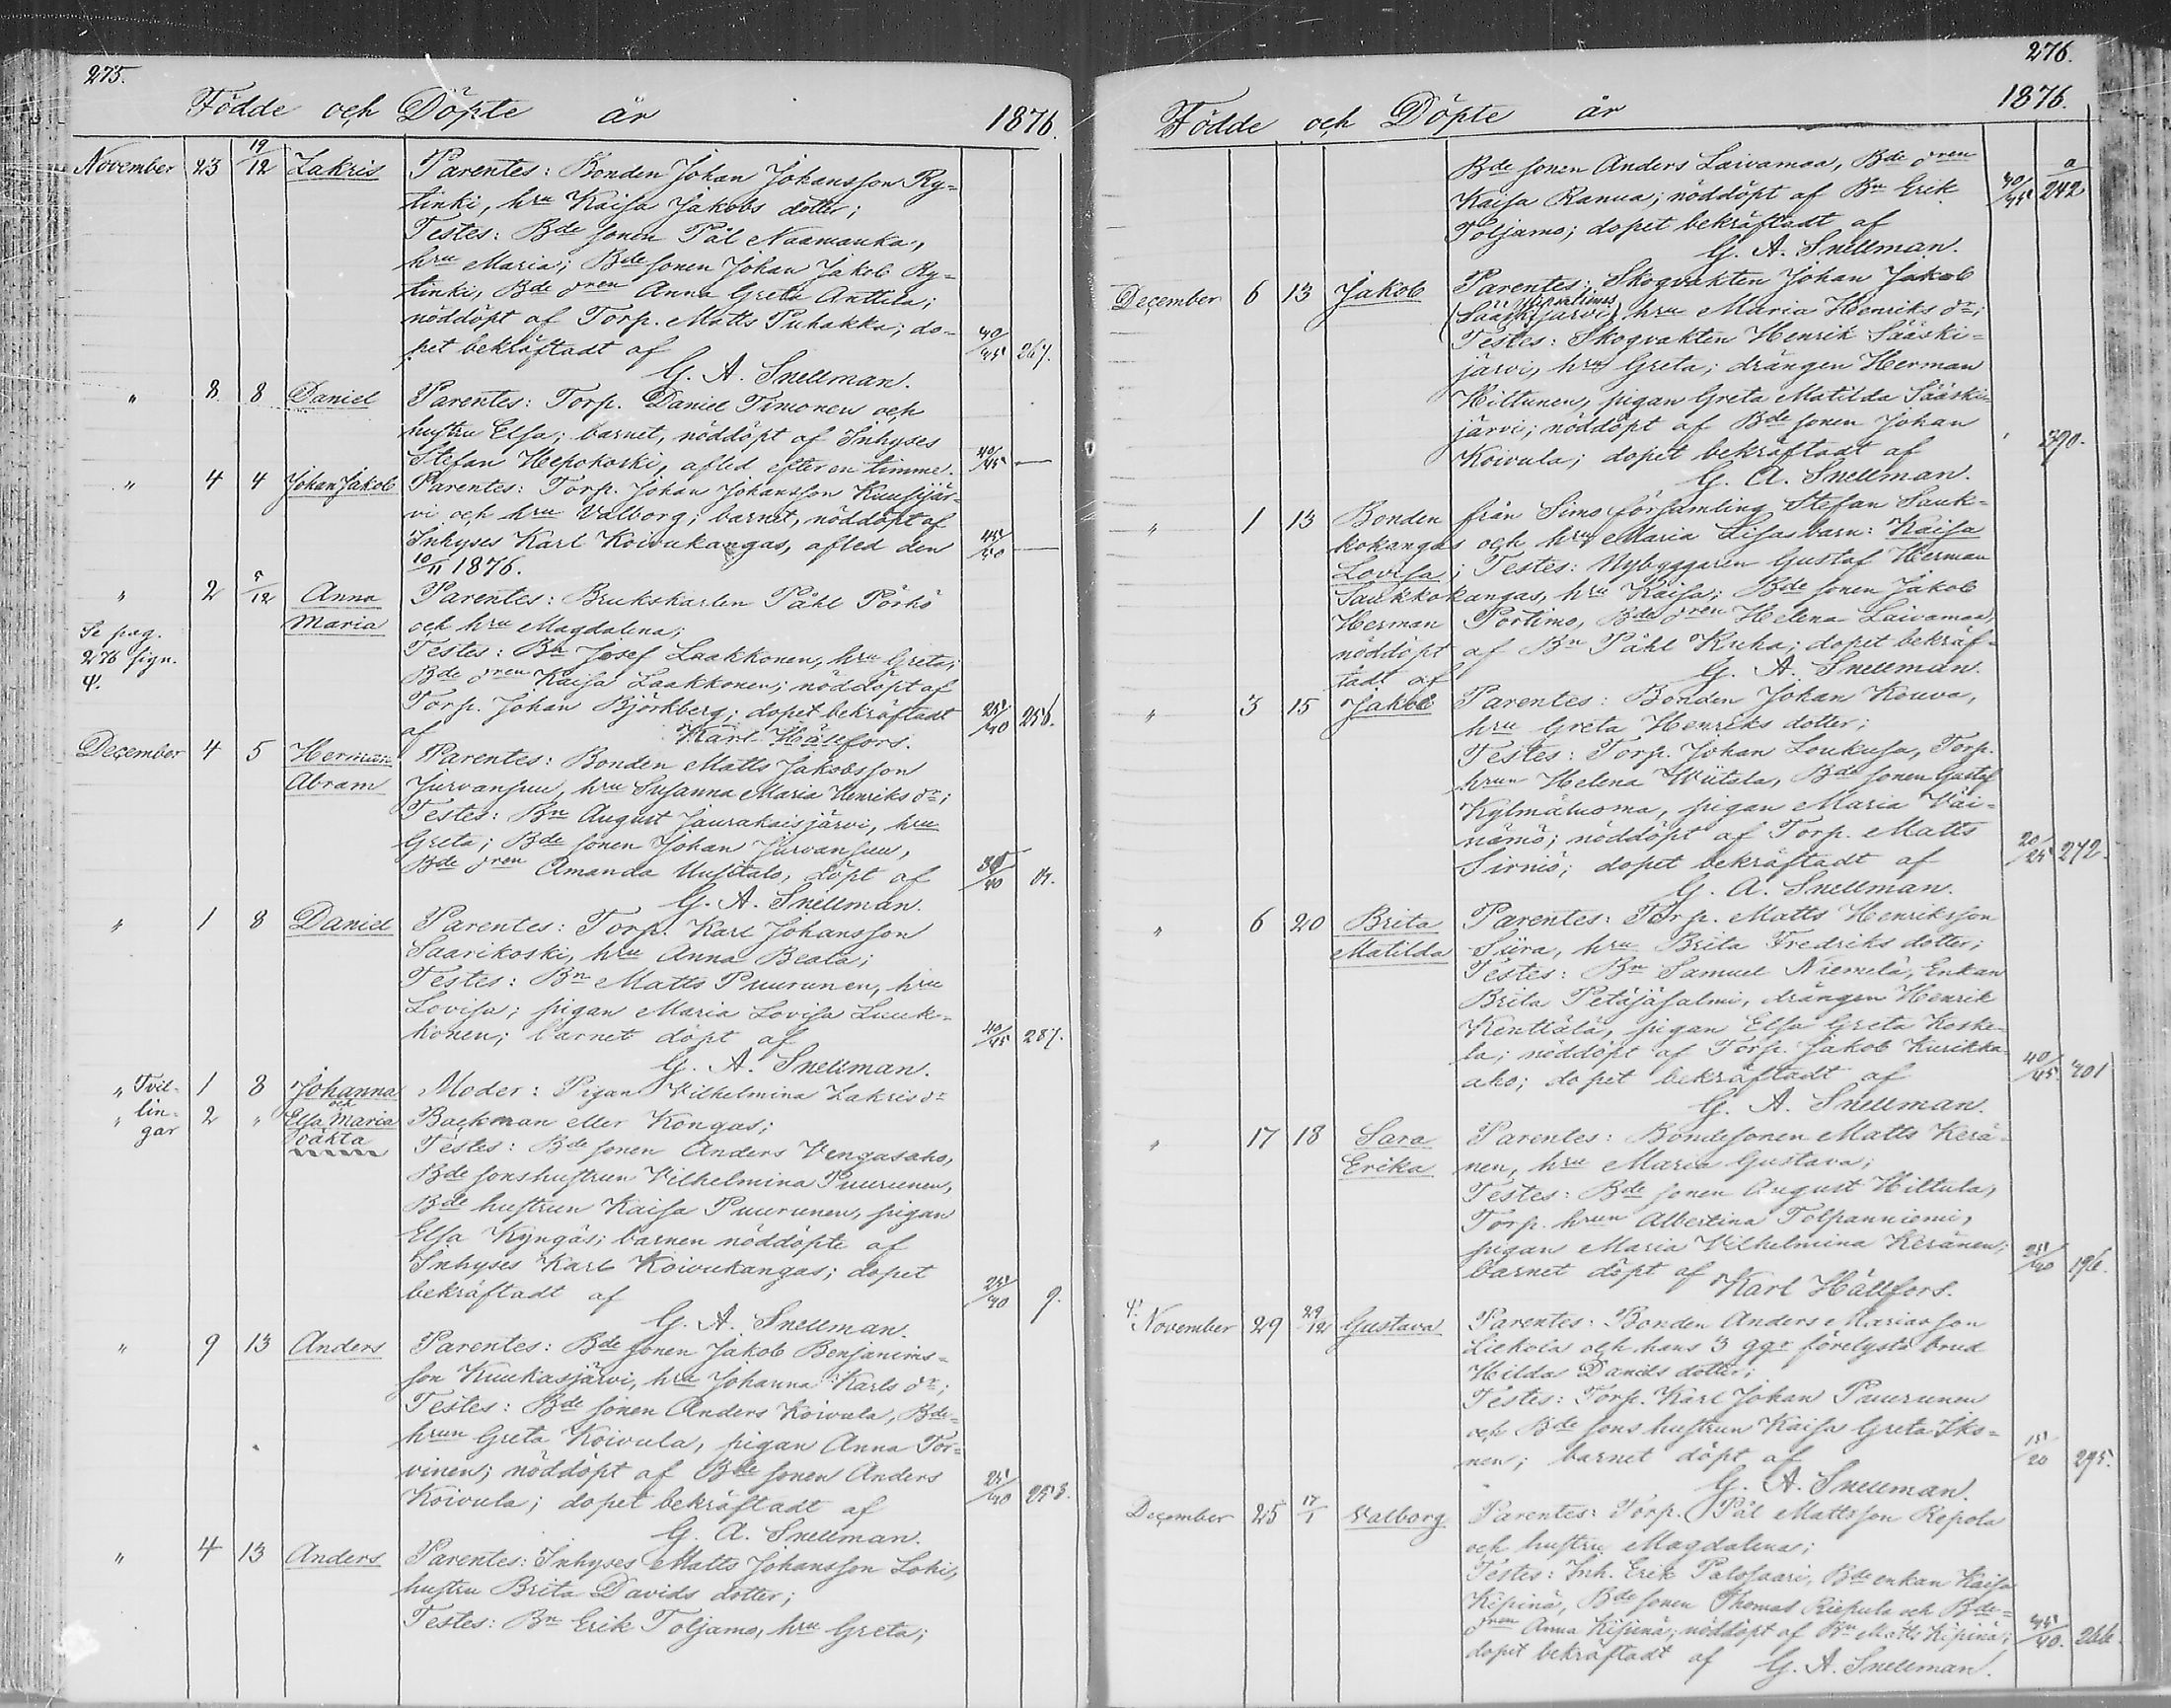 275.
Födde och Döpte år 1876.
November 23 19/12 Zakris Parentes: Bonden Johan Johansson Ry-
tinki, hru Kaisa Jakobs dotter;
Testes: Bde sonen Pål Naamanka,
hru Maria; Bde sonen Johan Jakob Ry-
tinki, Bde dren Anna Greta Anttila;
nöddöpt af Torp. Matts Puhakka; do-
pet bekräftadt af 40/45 267.
G. A. Snellman.
" 8 8 Daniel Parentes: Torp. Daniel Timonen och
hustru Elsa; barnet, nöddöpt af Inhyses
Stefan Hepokoski, afled efter en timme. 40/45 —
" 4 4 Johan Jakob Parentes: Torp. Johan Johansson Kuusijär-
vi och hru Valborg; barnet, nöddöpt af
Inhyses Karl Koivukangas, afled den 45/50 —
10/11 1876.
" 2 5/12 Anna Maria Parentes: Brukskarlen Påhl Pörhö
och hru Magdalena;
Se pag. 276 sign. 4. Testes: Bn Josef Laakkonen, hru Greta,
Bde dren Kaisa Laakkonen; nöddöpt af
Torp. Johan Björkberg; dopet bekräftadt 256.
af Karl Hällfors.
December 4 5 Herman Abram Parentes: Bonden Matts Jakobsson
Jurvansuu, hru Susanna Maria Henriks dr;
Testes: Bn August Jaurakaisjärvi, hru
Greta; Bde sonen Johan Jurvansuu,
Bde dren Amanda Uusitalo, döpt af
G. A. Snellman.
" 1 8 Daniel Parentes: Torp. Karl Johansson
Saarikoski, hru Anna Beata;
Testes: Bn Matts Puurunen, hru
Lovisa; pigan Maria Lovisa Luuk-
konen; barnet döpt af 40/45 287.
G. A. Snellman.
" Tvil- 1 8 Johanna Moder: Pigan Vilhelmina Zakris dr
" lin- gar 2 " och Elsa Maria oäkta Backman eller Kongas;
Testes: Bde sonen Anders Vengasaho,
Bde sonshustrun Vilhelmina Puurunen,
Bde hustrun Kaisa Puurunen, pigan
Elsa Kyngäs; barnen nöddöpte af
Inhyses Karl Koivukangas; dopet
bekräftadt af 9.
G. A. Snellman.
" 9 13 Anders Parentes: Bde sonen Jakob Benjamins-
son Kuukasjärvi, hru Johanna Karls dr;
Testes: Bde sonen Anders Koivula, Bde-
hrun Greta Koivula, pigan Anna Tor-
vinen; nöddöpt af Bde sonen Anders
Koivula; dopet bekräftadt af
G. A. Snellman.
" 4 13 Anders Parentes: Inhyses Matts Johansson Lohi,
hustru Brita Davids dotter;
Testes: Bn Erik Toljamo, hru Greta;
276.
Födde och Döpte år 1876.
Bde sonen Anders Laivamaa, Bde dren
Kaisa Ranua; nöddöpt af Bn Erik 40/45 a/242
Toljamo; dopet bekräftadt af
G. A. Snellman.
December 6 13 Jakob Parentes: Skogvakten Johan Jakob
(Sääskijärvi), hru Maria Henriks dr;
Testes: Skogvakten Henrik Sääski-
järvi, hru Greta; drängen Herman
Hiltunen, pigan Greta Matilda Sääski-
järvi; nöddöpt af Bde sonen Johan
Koivula; dopet bekräftadt af 390.
G. A. Snellman.
" 1 13 Bonden från Simo församling Stefan Sauk-
kokangas och hru Maria Lisas barn: Kaisa
Lovisa; Testes: Nybyggaren Gustaf Herman
Saukkokangas, hru Kaisa; Bde sonen Jakob
Herman Portimo, Bde dren Helena Laivamaa,
nöddöpt af Bn Påhl Kuha; dopet bekräf-
tadt af G. A. Snellman.
" 3 15 Jakob Parentes: Bonden Johan Kouva,
hru Greta Henriks dotter;
Testes: Torp. Johan Loukusa, Torp.
hrun Helena Wiitala, Bde sonen Gustaf
Kylmäluoma, pigan Maria Väi-
nämö; nöddöpt af Torp. Matts
Sirniö; dopet bekräftadt af 20/25 272.
G. A. Snellman.
" 6 20 Brita Matilda Parentes: Torp. Matts Henriksson
Siira, hru Brita Fredriks dotter;
Testes: Bn Samuel Niemelä, Enkan
Brita Petäjäsalmi, drängen Henrik
Kenttälä, pigan Elsa Greta Koske-
la; nöddöpt af Torp. Jakob Kurikka-
aho; dopet bekräftadt af 40/45 401
G. A. Snellman.
" 17 18 Sara Erika Parentes: Bondesonen Matts Kerä-
nen, hru Maria Gustava;
Testes: Bde sonen August Hiltula,
Torp. hrun Albertina Tolpanniemi,
pigan Maria Vilhelmina Keränen;
barnet döpt af 196.
Karl Hällfors.
4. November 29 29/12 Gustava Parentes: Bonden Anders Mariasson
Liekola och hans 3 ggr förelysta brud
Hilda Daniels dotter;
Testes: Torp. Karl Johan Puurunen
och Bde sons hustrun Kaisa Greta Iko-
nen; barnet döpt af 15/20 295.
G. A. Snellman.
December 25 17/1 Valborg Parentes: Torp. Pål Mattsson Repola
och hustru Magdalena;
Testes: Inh. Erik Palosaari, Bde enkan Kaisa
Kipinä, Bde sonen Thomas Riepula och Bde-
dren Anna Kipinä; nöddöpt af Bn Matts Kipinä;
dopet bekräftadt af G. A. Snellman. 266.